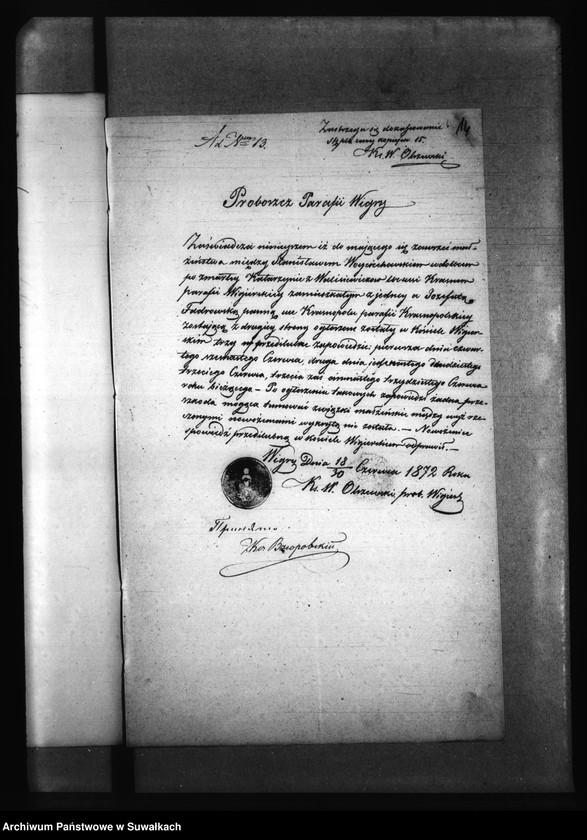 Ad Nrum 13.
Zastrzega się dokasowanie
stępla ceny kopiejek 15.
Ks. W. Olszewski
14
Proboszcz Parafii Wigry
Zaświadcza niniejszem iż do mającego się zawrzeć mał-
żeństwa między Stanisławem Wojciechowskim wdowcem
po zmarłey Katarzynie z Walinieviczow we wsi Krusznik
parafii Wigierskiej zamieszkałym z jedney a Jozefatą
Fadrowską panną we Krasnopolu parafii Krasnopolskiey
zostającą z drugiej strony ogłoszone zostały w Kościele Wigier-
skim trzy przedślubne zapowiedzie: pierwsza dnia czwar-
tego szesnastego Czerwca, druga dnia jedenastego dwudziestego
trzeciego Czerwca, trzecia zaś osmnastego trzydziestego Czerwca
roku bieżącego – Po ogłoszeniu takowych zapowiedzi żadna prze-
szkoda mogąca tamować związki małżeńskie między wyż rze-
czonymi nowożeńcami wykrytą nie została. – Nowożeniec
spowiedź przedślubną w kościele Wigierskim odprawił. –
Wigry Dnia 18/30 Czerwca 1872 Roku
Ks. W. Olszewski, prob. Wigiers.
Archiwum Państwowe w Suwałkach